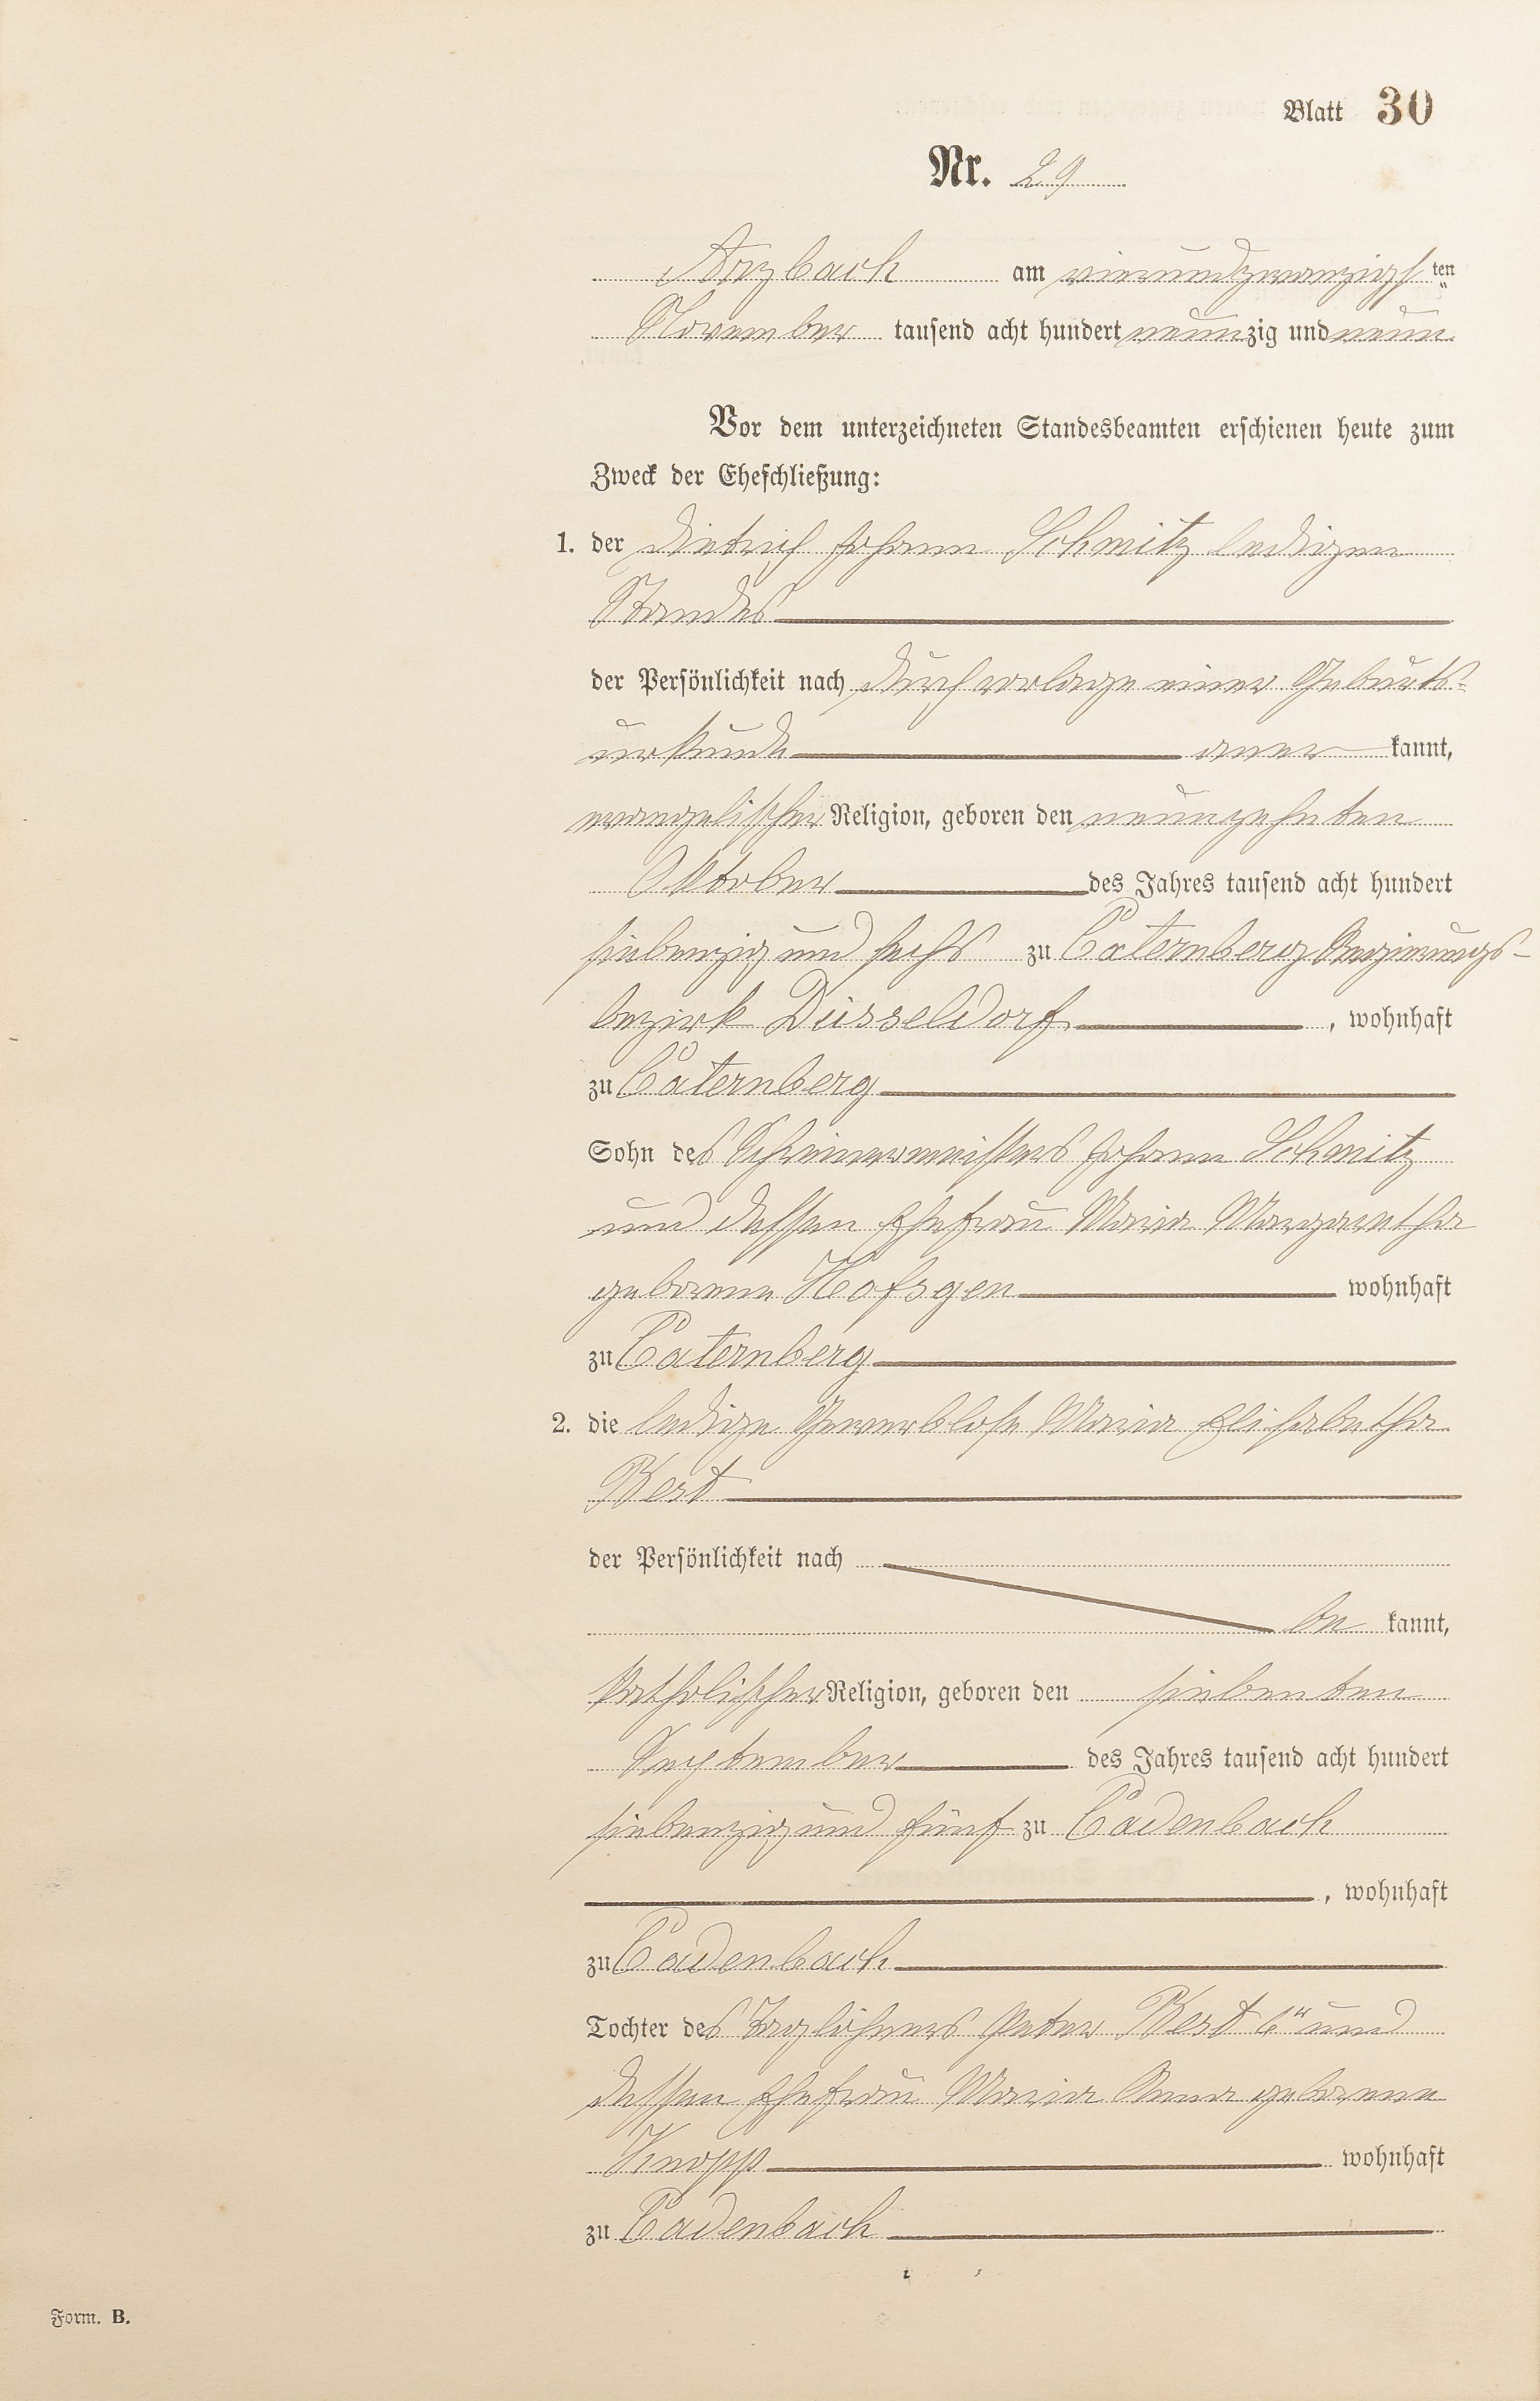 Blatt 30
Nr. 29
Arzbach am vierundzwanzigsten
November tausend acht hundert neunzig und neun
Vor dem unterzeichneten Standesbeamten erschienen heute zum
Zweck der Eheschließung:
1. der Dietrich Johann Schmitz ledigen
Standes
der Persönlichkeit nach durch vorlage einer Geburts-
urkunde aner kannt,
evangelischer Religion, geboren den neunzehnten
Oktober des Jahres tausend acht hundert
siebenzig und sechs zu Caternberg Regierungs-
bezirk Düsseldorf, wohnhaft
zu Caternberg
Sohn des Schreinermeisters Johann Schmitz
und dessen Ehefrau Maria Margaretha
geborene Hofsgen wohnhaft
zu Caternberg
2. die ledige Gewerblose Maria Elisabetha
Kest
der Persönlichkeit nach
be kannt,
katholischer Religion, geboren den siebenten
September des Jahres tausend acht hundert
siebenzig und fünf zu Cadenbach
, wohnhaft
zu Cadenbach
Tochter des Taglöhners Peter Kest 6r und
dessen Ehefrau Maria Anna geborene
Knopp wohnhaft
zu Cadenbach
Form. B.